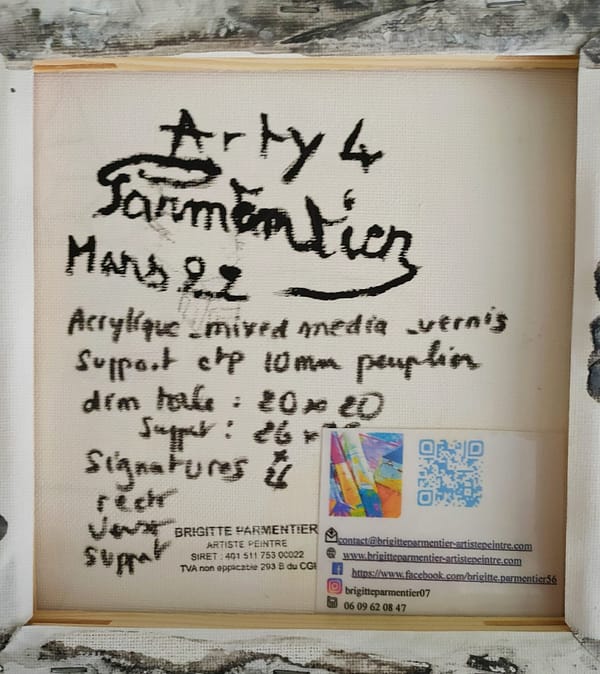 Arty 4
Parmentier
Mars 22
Acrylique - mixed media - vernis
Support ctp 10mm peuplier
dim toile : 20 x 20
Support : 26 x
Signatures
recto
verso
support
BRIGITTE PARMENTIER
ARTISTE PEINTRE
SIRET : 401 511 753 00022
TVA non applicable 293 B du CGI
contact@brigitteparmentier-artistepeintre.com
www.brigitteparmentier-artistepeintre.com
https://www.facebook.com/brigitte.parmentier56
brigitteparmentier07
06 09 62 08 47